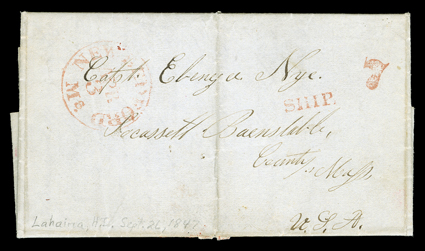 NEW BEDFORD Ms
5
Capt. Ebenr Nye.
SHIP.
Pocassett Barnstable,
County, Mass,
U.S.A.
Lahaina, H.I., Sept. 26, 1847